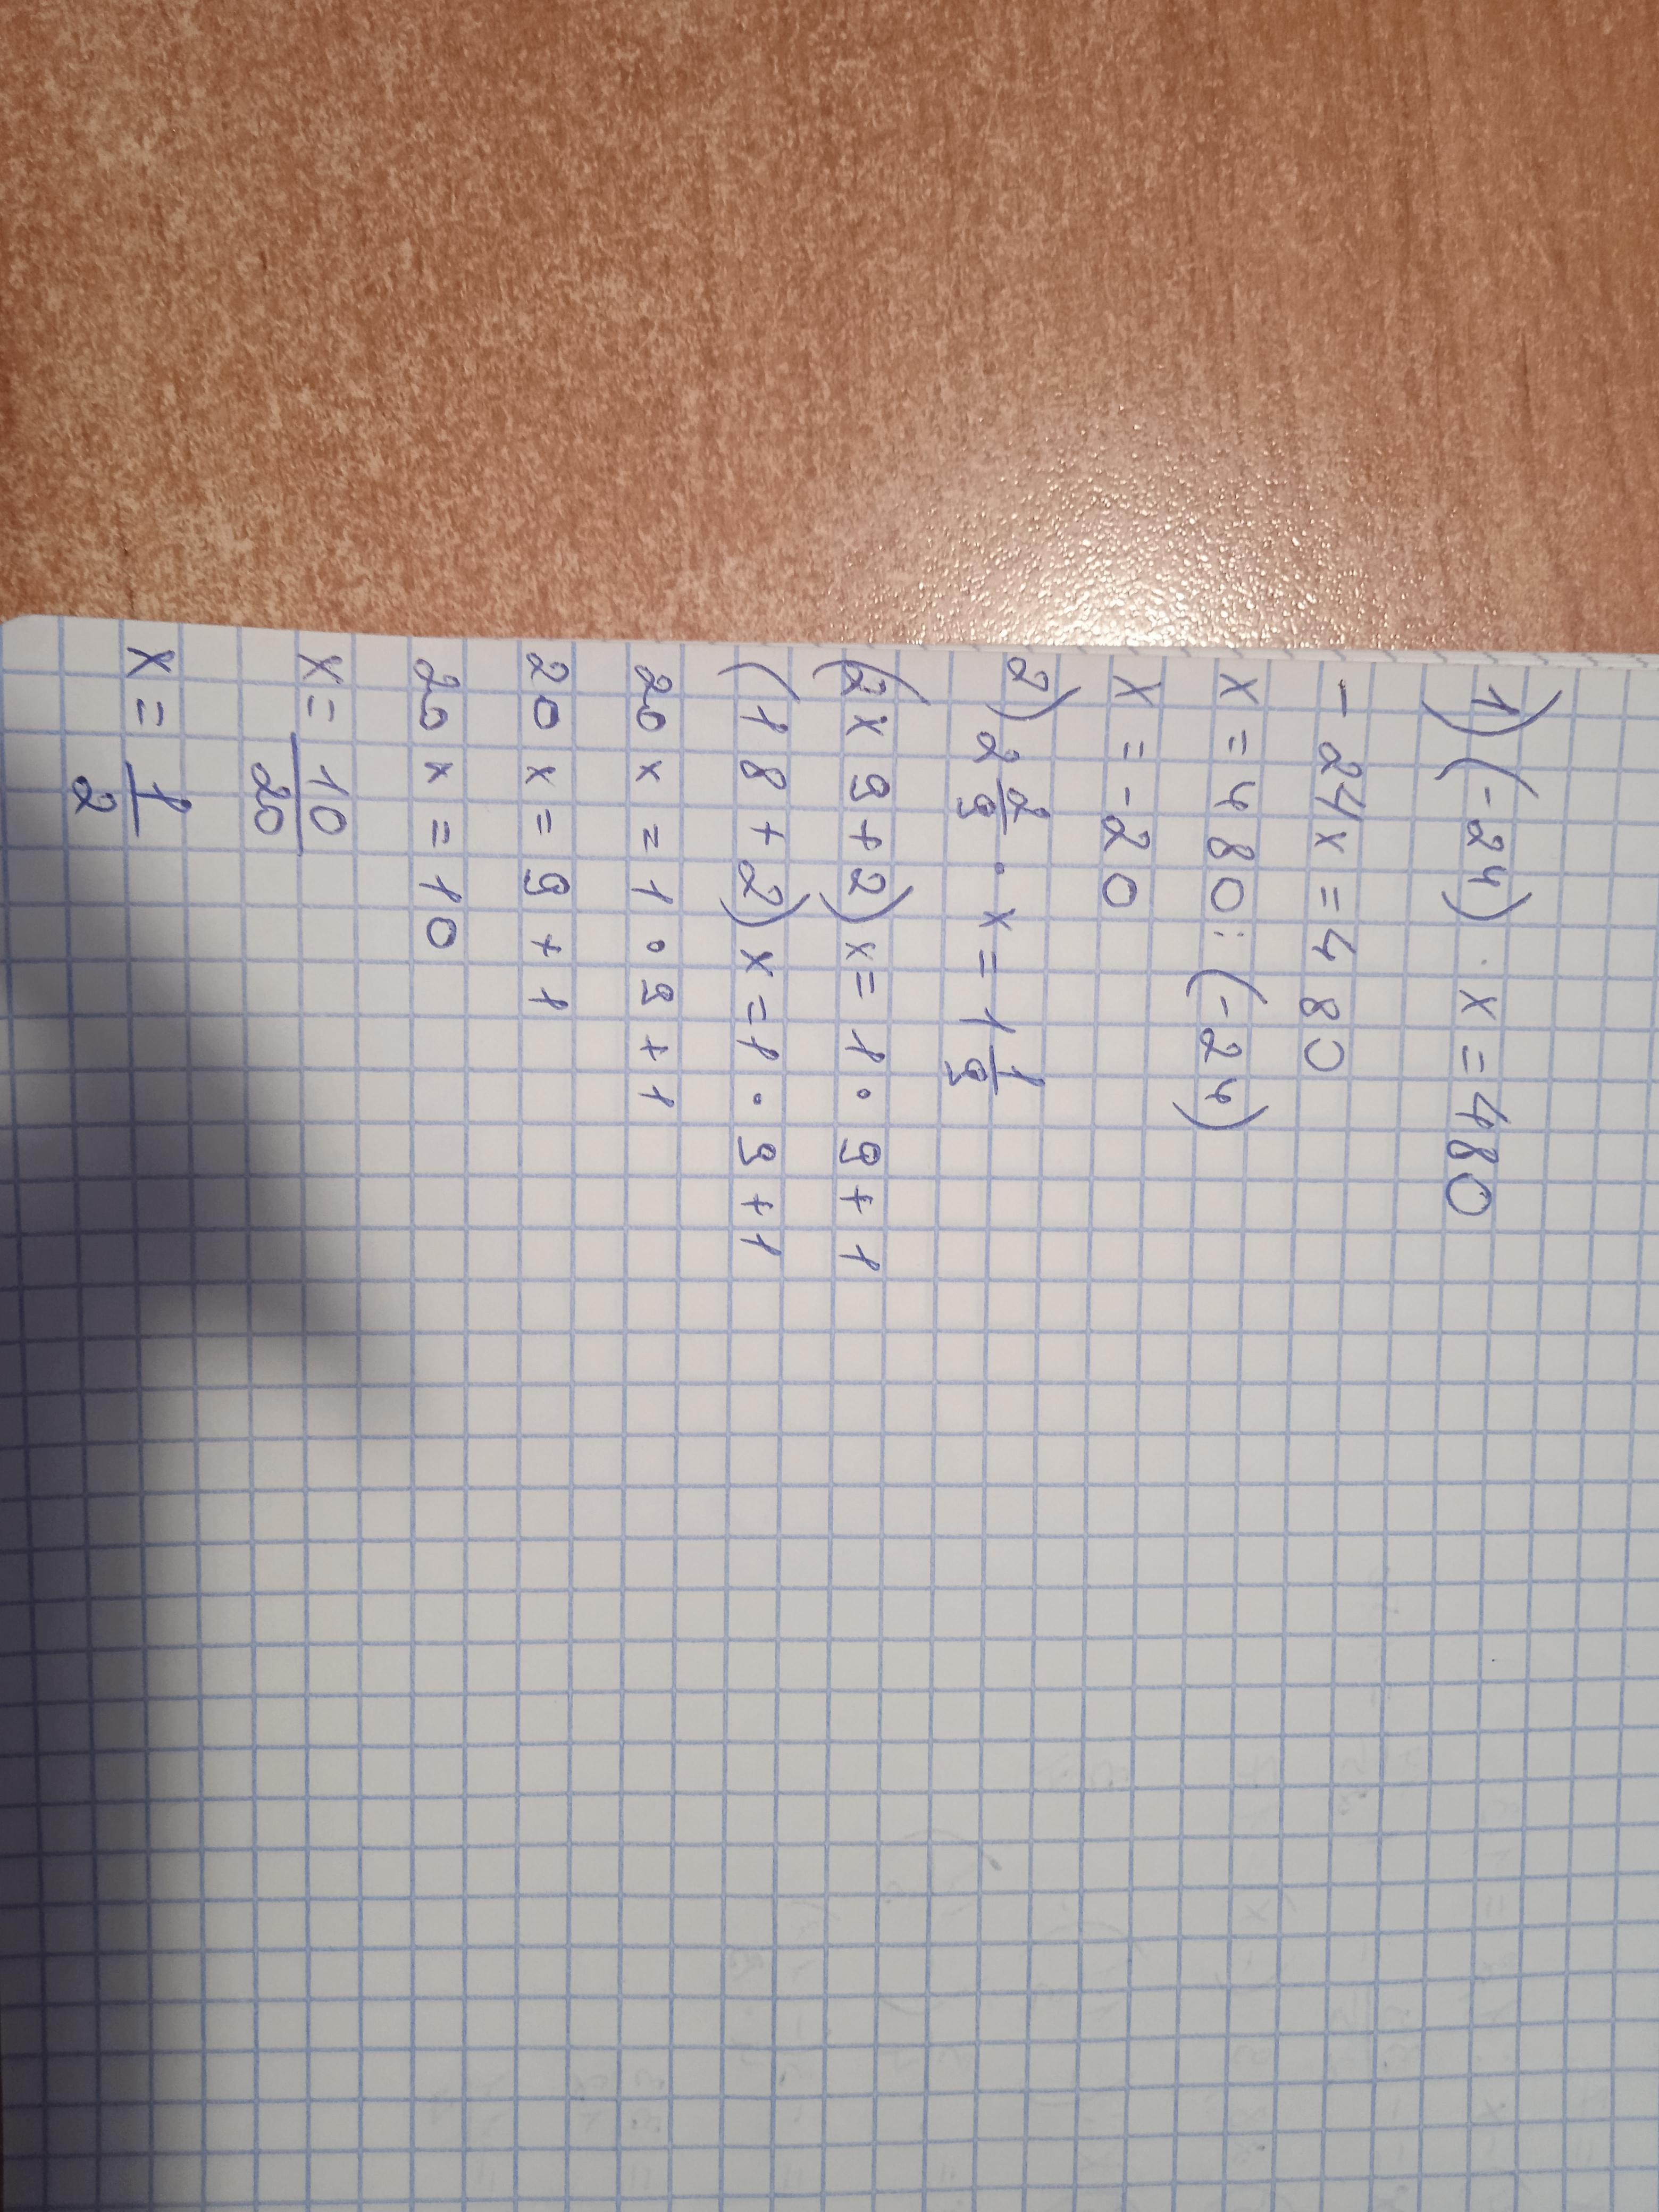 1) (-24) · x = 480
- 24x = 480
x = 480 : (-24)
x = -20
2) 2 2/9 · x = 1 1/9
(2 x 9 + 2) x = 1 · 9 + 1
(18 + 2) x = 1 · 9 + 1
20 x = 1 · 9 + 1
20 x = 9 + 1
20 x = 10
x = 10/20
x = 1/2